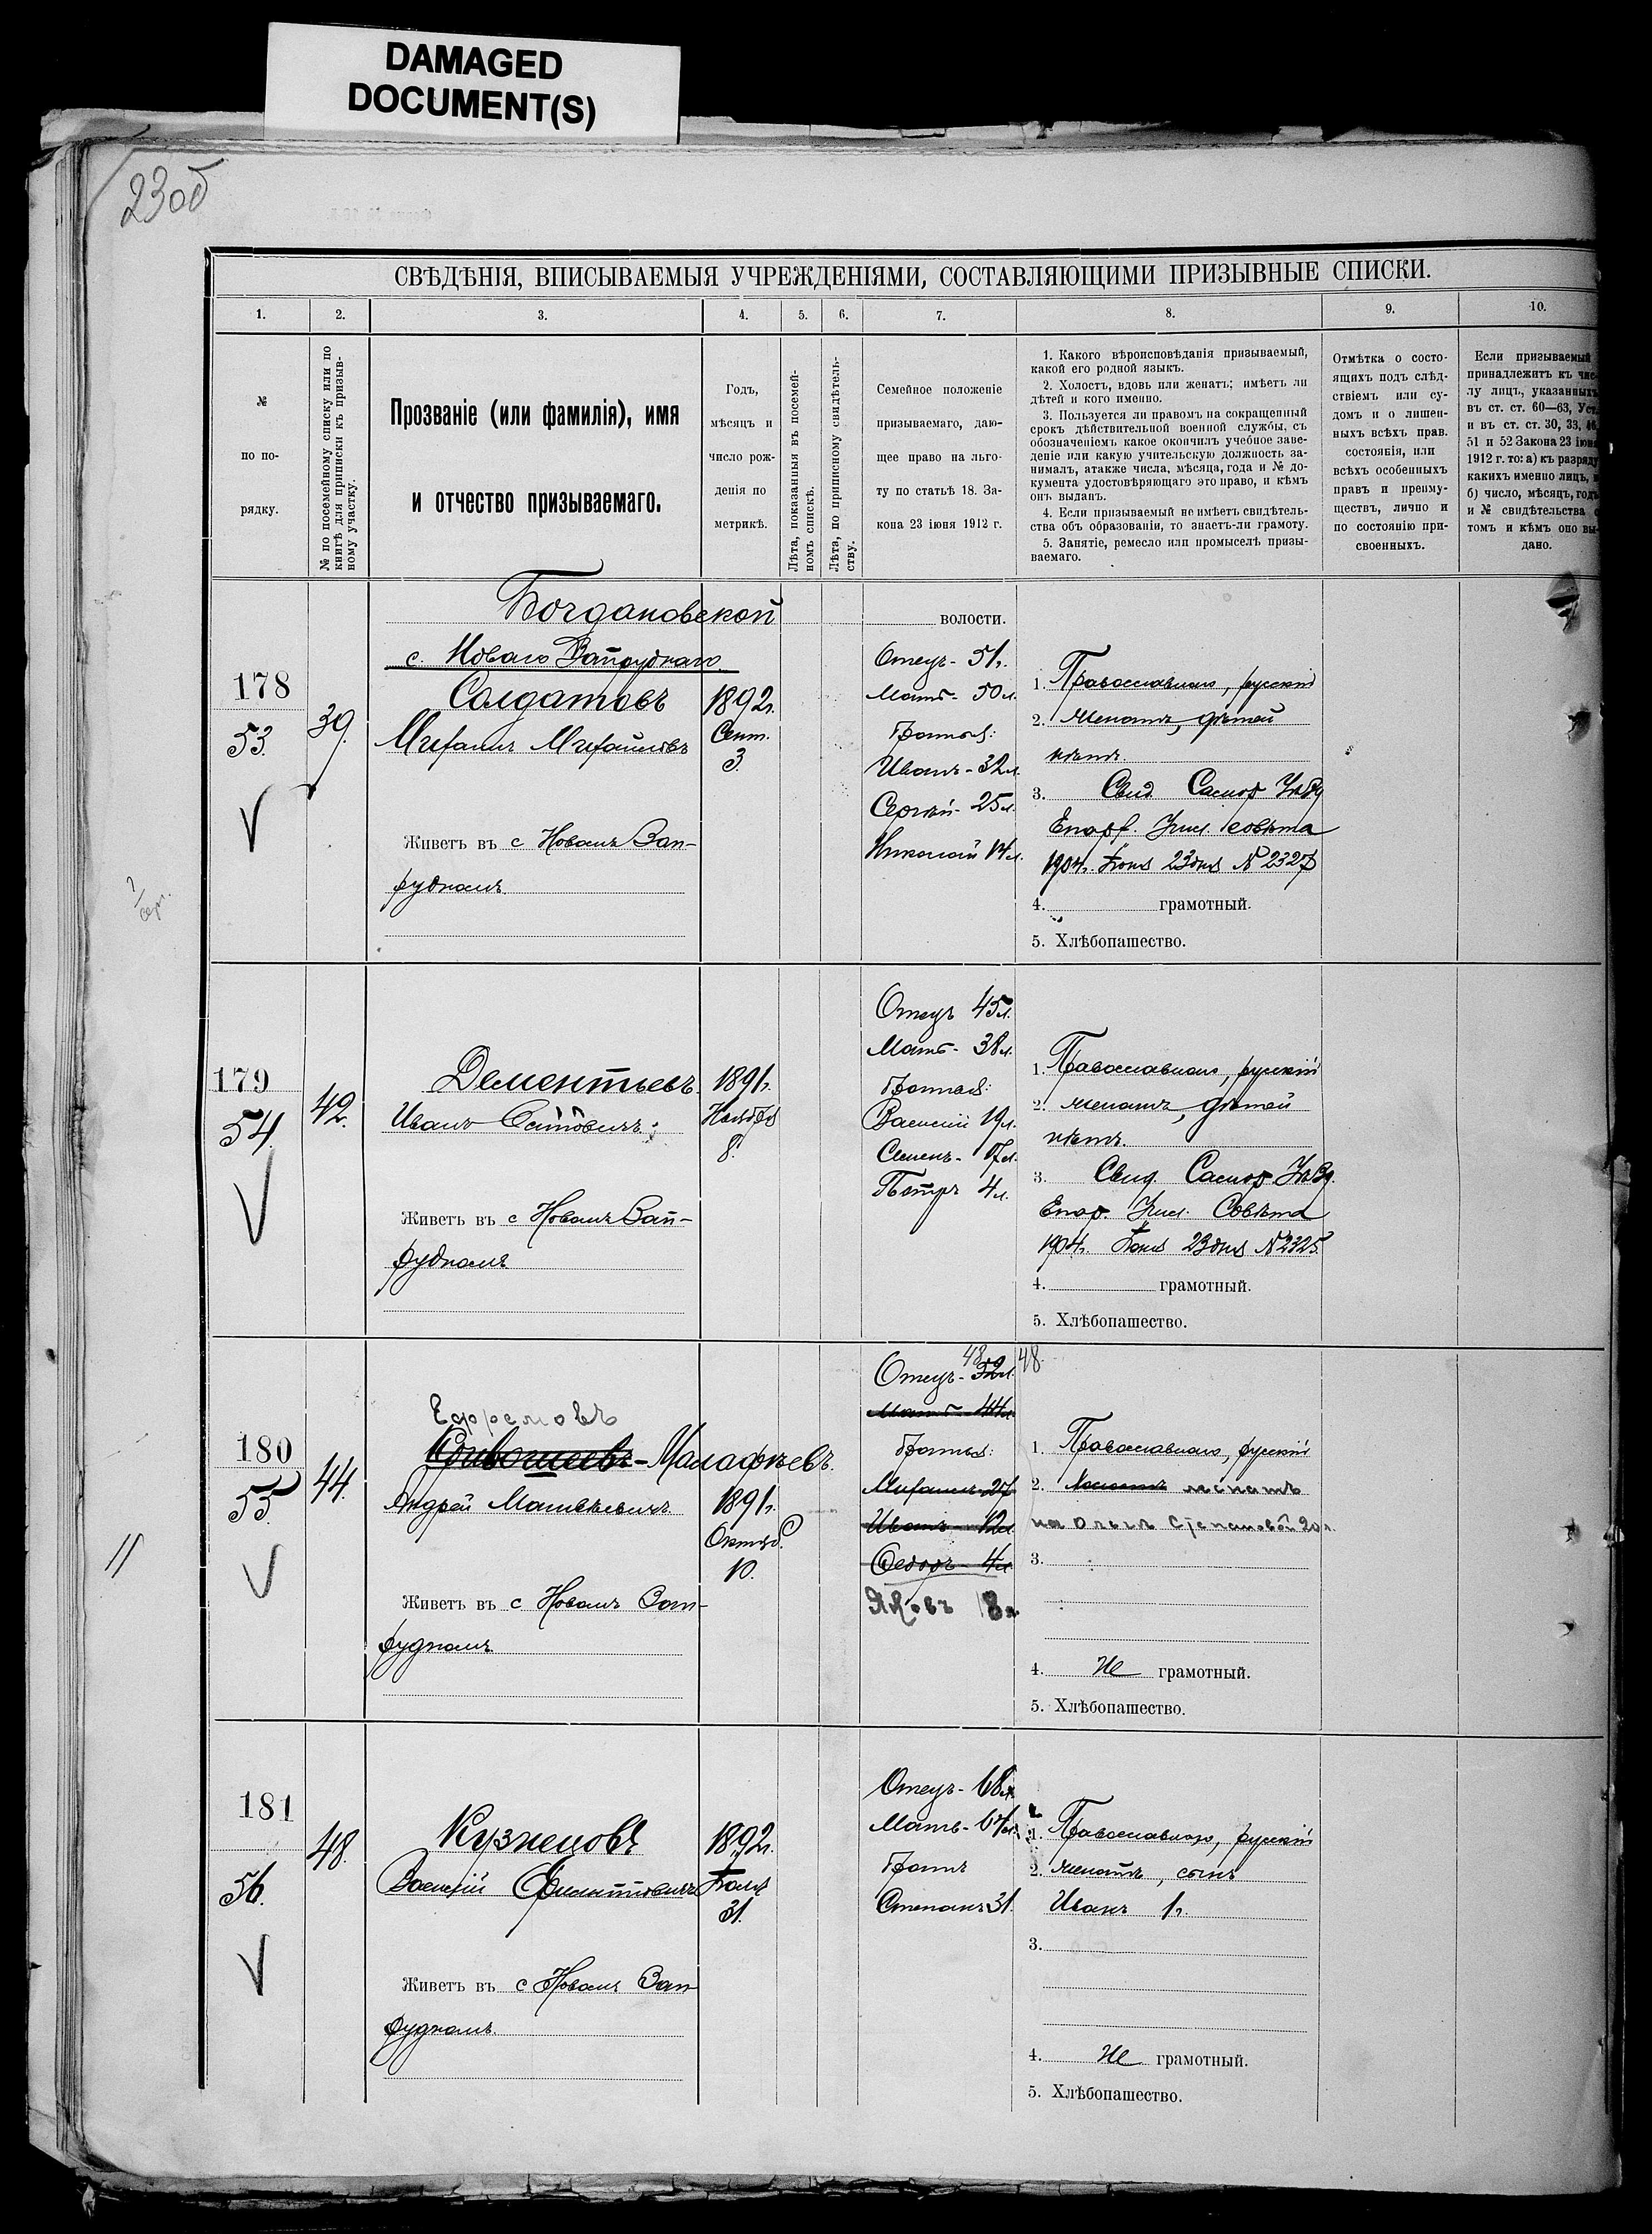 DAMAGED
DOCUMENT(S)
23об
СВѢДѢНІЯ, ВПИСЫВАЕМЫЯ УЧРЕЖДЕНІЯМИ, СОСТАВЛЯЮЩИМИ ПРИЗЫВНЫЕ СПИСКИ.
1. 2. 3. 4. 5. 6. 7. 8. 9. 10.
№
по по-
рядку.
№ по посемейному списку или по
книгѣ для приписки къ призыв-
ному участку.
Прозваніе (или фамилія), имя
и отчество призываемаго.
Годъ,
мѣсяцъ и
число рож-
денія по
метрикѣ.
Лѣта, показанныя въ посемей-
номъ спискѣ.
Лѣта, по приписному свидѣтель-
ству.
Семейное положеніе
призываемаго, даю-
щее право на льго-
ту по статьѣ 18. За-
кона 23 іюня 1912 г.
1. Какого вѣроисповѣданія призываемый,
какой его родной языкъ.
2. Холостъ, вдовъ или женатъ; имѣетъ ли
дѣтей и кого именно.
3. Пользуется ли правомъ на сокращенный
срокъ дѣйствительной военной службы, съ
обозначеніемъ какое окончилъ учебное заве-
деніе или какую учительскую должность за-
нималъ, атакже числа, мѣсяца, года и № до-
кумента удостовѣряющаго это право, и кѣмъ
онъ выданъ.
4. Если призываемый не имѣетъ свидѣтель-
ства объ образованіи, то знаетъ-ли грамоту.
5. Занятіе, ремесло или промыселъ призы-
ваемаго.
Отмѣтка о состо-
ящихъ подъ слѣд-
ствіемъ или су-
домъ и о лишен-
ныхъ всѣхъ прав.
состоянія, или
всѣхъ особенныхъ
правъ и преиму-
ществъ, лично и
по состоянію при-
своенныхъ.
Если призываемый
принадлежитъ къ чис-
лу лицъ, указанныхъ
въ ст. ст. 60—63, Уст.
и въ ст. ст. 30, 33, 46,
51 и 52 Закона 23 іюня
1912 г. то: а) къ разряду
какихъ именно лицъ, и
б) число, мѣсяцъ, годъ
и № свидѣтельства о
томъ и кѣмъ оно вы-
дано.
Богдановской волости.
с. Новаго Запруднаго
178
53.
39.
Солдатовъ
Михаилъ Михайловъ
Живетъ въ с Новомъ Зап-
рудномъ
1892г.
Сент.
3.
Отецъ - 51г.
Мать - 50л.
Братья:
Иванъ - 32л.
Сергѣй - 25л.
Николай 14л.
1. Православнаго, русскій
2. женатъ, дѣтей
нѣтъ.
3. Свид. Самар. Уѣзд
Епарх. Учил. совѣта
1904г. Іюня 23дня № 2327
4. грамотный.
5. Хлѣбопашество.
179
54.
42.
Дементьевъ
Иванъ
Живетъ въ с Новомъ Зап-
рудномъ
1891г.
Ноября
8.
Отецъ 45л.
Мать - 38л.
Братья:
Василій 19л.
Семенъ - 17л.
Петръ 4л.
1. Православнаго, русскій
2. женатъ, дѣтей
нѣтъ.
3. Свид. Самар. Уѣзд.
Епар. Учил. Совѣта
1904г. Іюня 23дня № 2325
4. грамотный.
5. Хлѣбопашество.
180
55.
44.
Ефремовъ
Кривошеевъ - Малафѣевъ.
Андрей Матвѣевичъ
Живетъ въ с Новомъ Зап-
рудномъ.
1891г.
Октяб.
10.
Отецъ - 52л. 48
Мать - 44л.
Братья:
Михаилъ 27
Иванъ - 12л
Федоръ - 4л
Яковъ 18л.
1. Православнаго, русскій
2. Холостъ женатъ
на Ольгѣ Степановой 20л.
3.
4. Не грамотный.
5. Хлѣбопашество.
181
56.
48.
Кузнецовъ
Василій
Живетъ въ с Новомъ Зап-
рудномъ.
1892г.
31.
Отецъ - 68л
Мать - 67л.
Братъ
Степанъ 31.
1. Православнаго, русскій
2. женатъ, сынъ
Иванъ 1г.
3.
4. Не грамотный.
5. Хлѣбопашество.